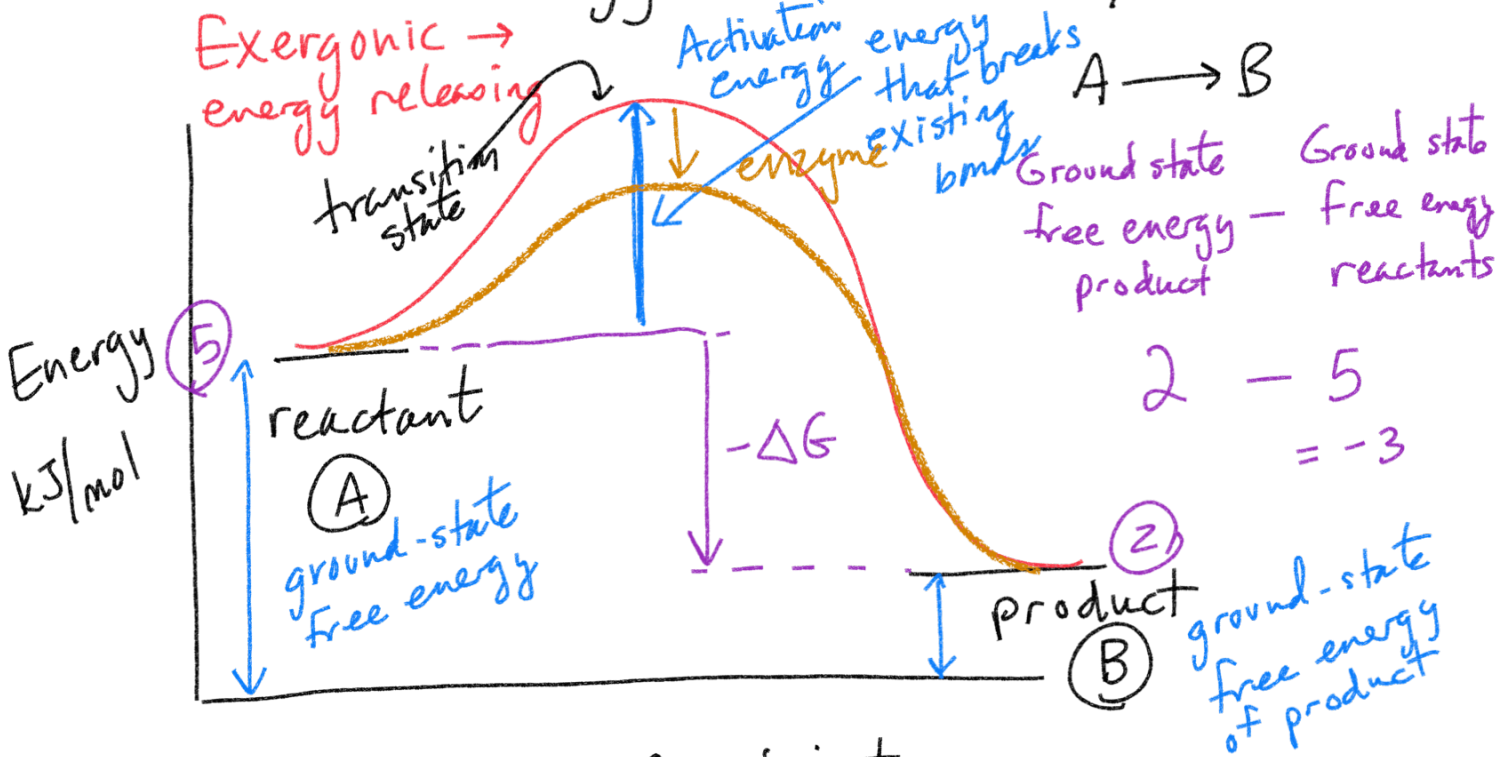 Exergonic →
energy releasing
transition
state
Activation
energy
energy
that breaks
existing
bonds
enzyme
A → B
Ground state
free energy
product
–
Ground state
free energy
reactants
2 – 5
= -3
Energy
kJ/mol
5
reactant
A
ground-state
free energy
-ΔG
2
product
B
ground-state
free energy
of product